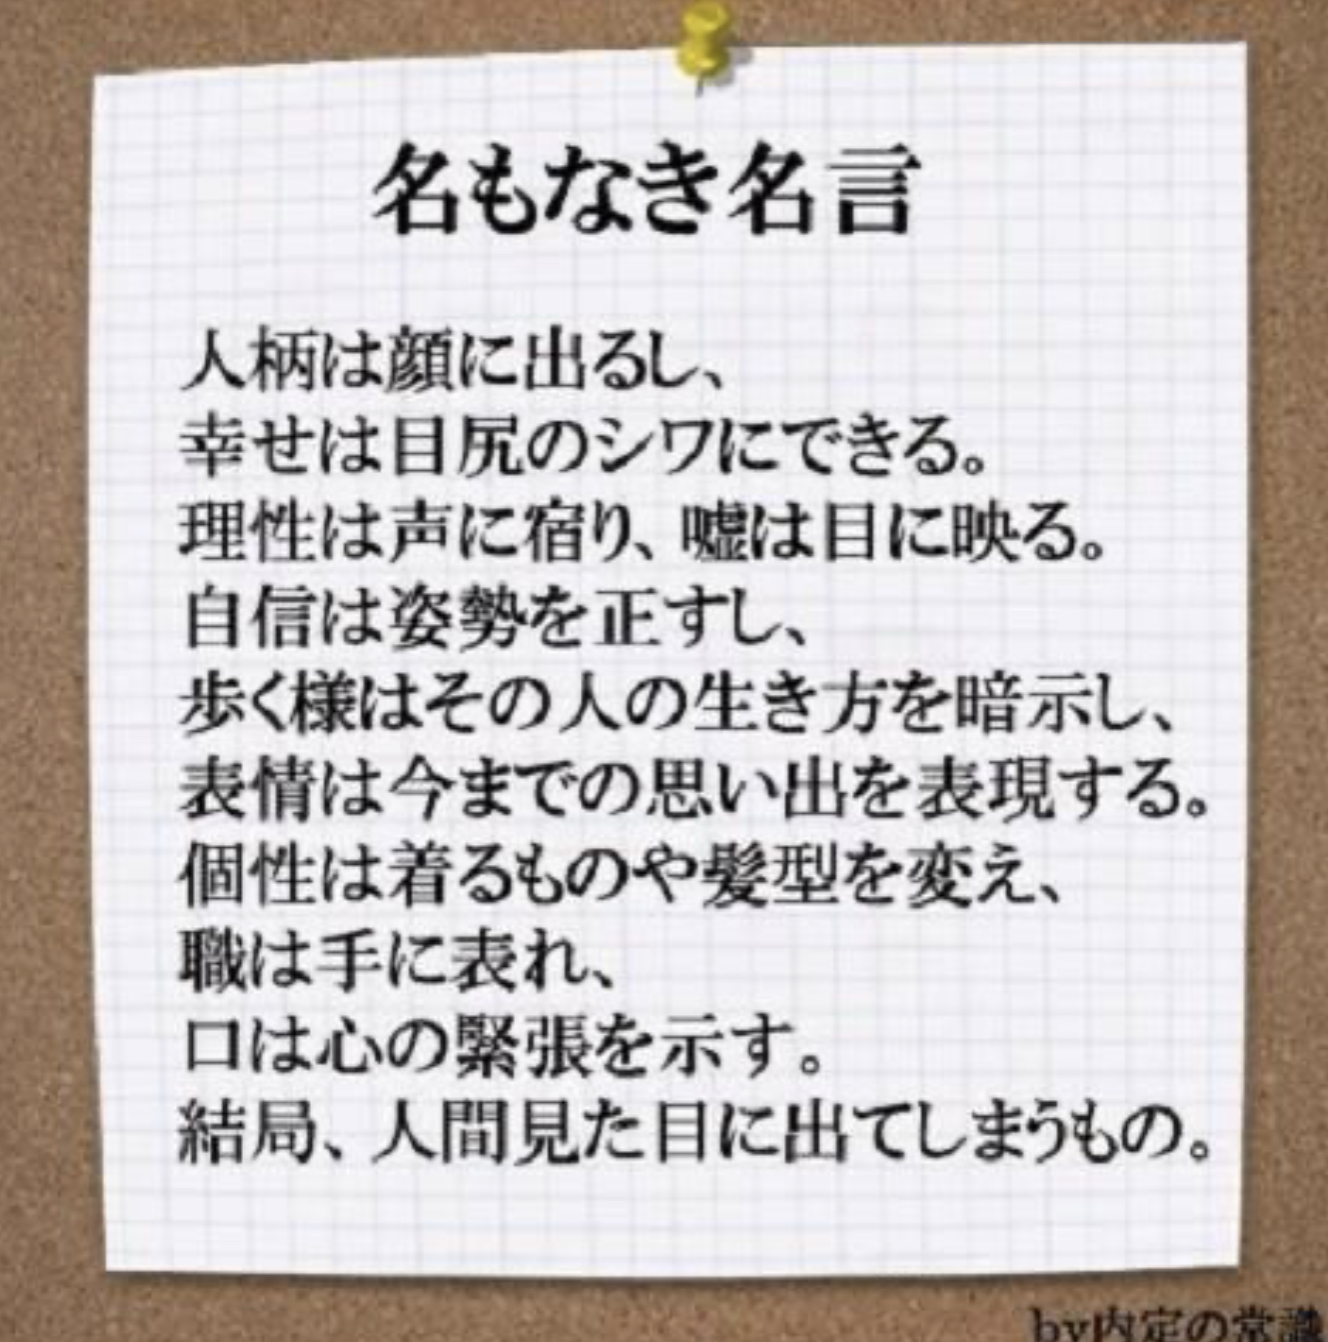 名もなき名言
人柄は顔に出るし、
幸せは目尻のシワにできる。
理性は声に宿り、嘘は目に映る。
自信は姿勢を正すし、
歩く様はその人の生き方を暗示し、
表情は今までの思い出を表現する。
個性は着るものや髪型を変え、
職は手に表れ、
口は心の緊張を示す。
結局、人間見た目に出てしまうもの。
by内定の常識